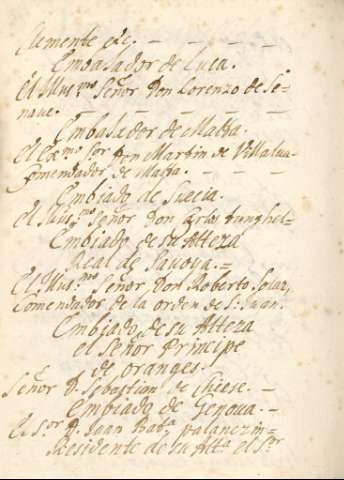 Clemente etc. - - - -
Embasador de Luca.
El Illus.mo Señor Don Lorenzo de Se-
naue. - - - -
Embasador de Malta.
El Ex.mo S.or Don Martin de Villalua-
Comendador de Malta. - - -
Embiado de Suecia.
El Illus.mo Señor don Carlos
Embiado de su Alteza
Real de Savoya. =
El Illus.mo Señor Don Roberto Solar,
Comendador de la orden de S. Juan.
Embiado de su Alteza
el Señor Principe
de oranges. -
Señor D. Sebastian de Chiese. -
Embiado de Genoua. -
El S.or D. Juan Bat.a palanezin-
Residente de su Alt.a el S.or